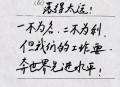 落得太远!
一不为名，二不为利，
但我们的工作要
夺世界先进水平!